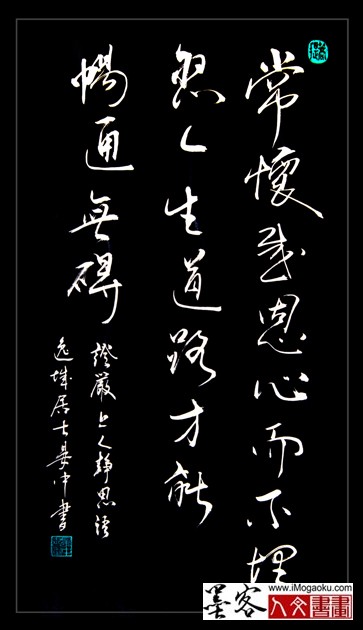 常懷感恩心而不埋
怨人生道路才能
暢通無礙
證嚴上人靜思語
逸城居士晏中書
www.iMogaoku.com
墨客
人文書畫